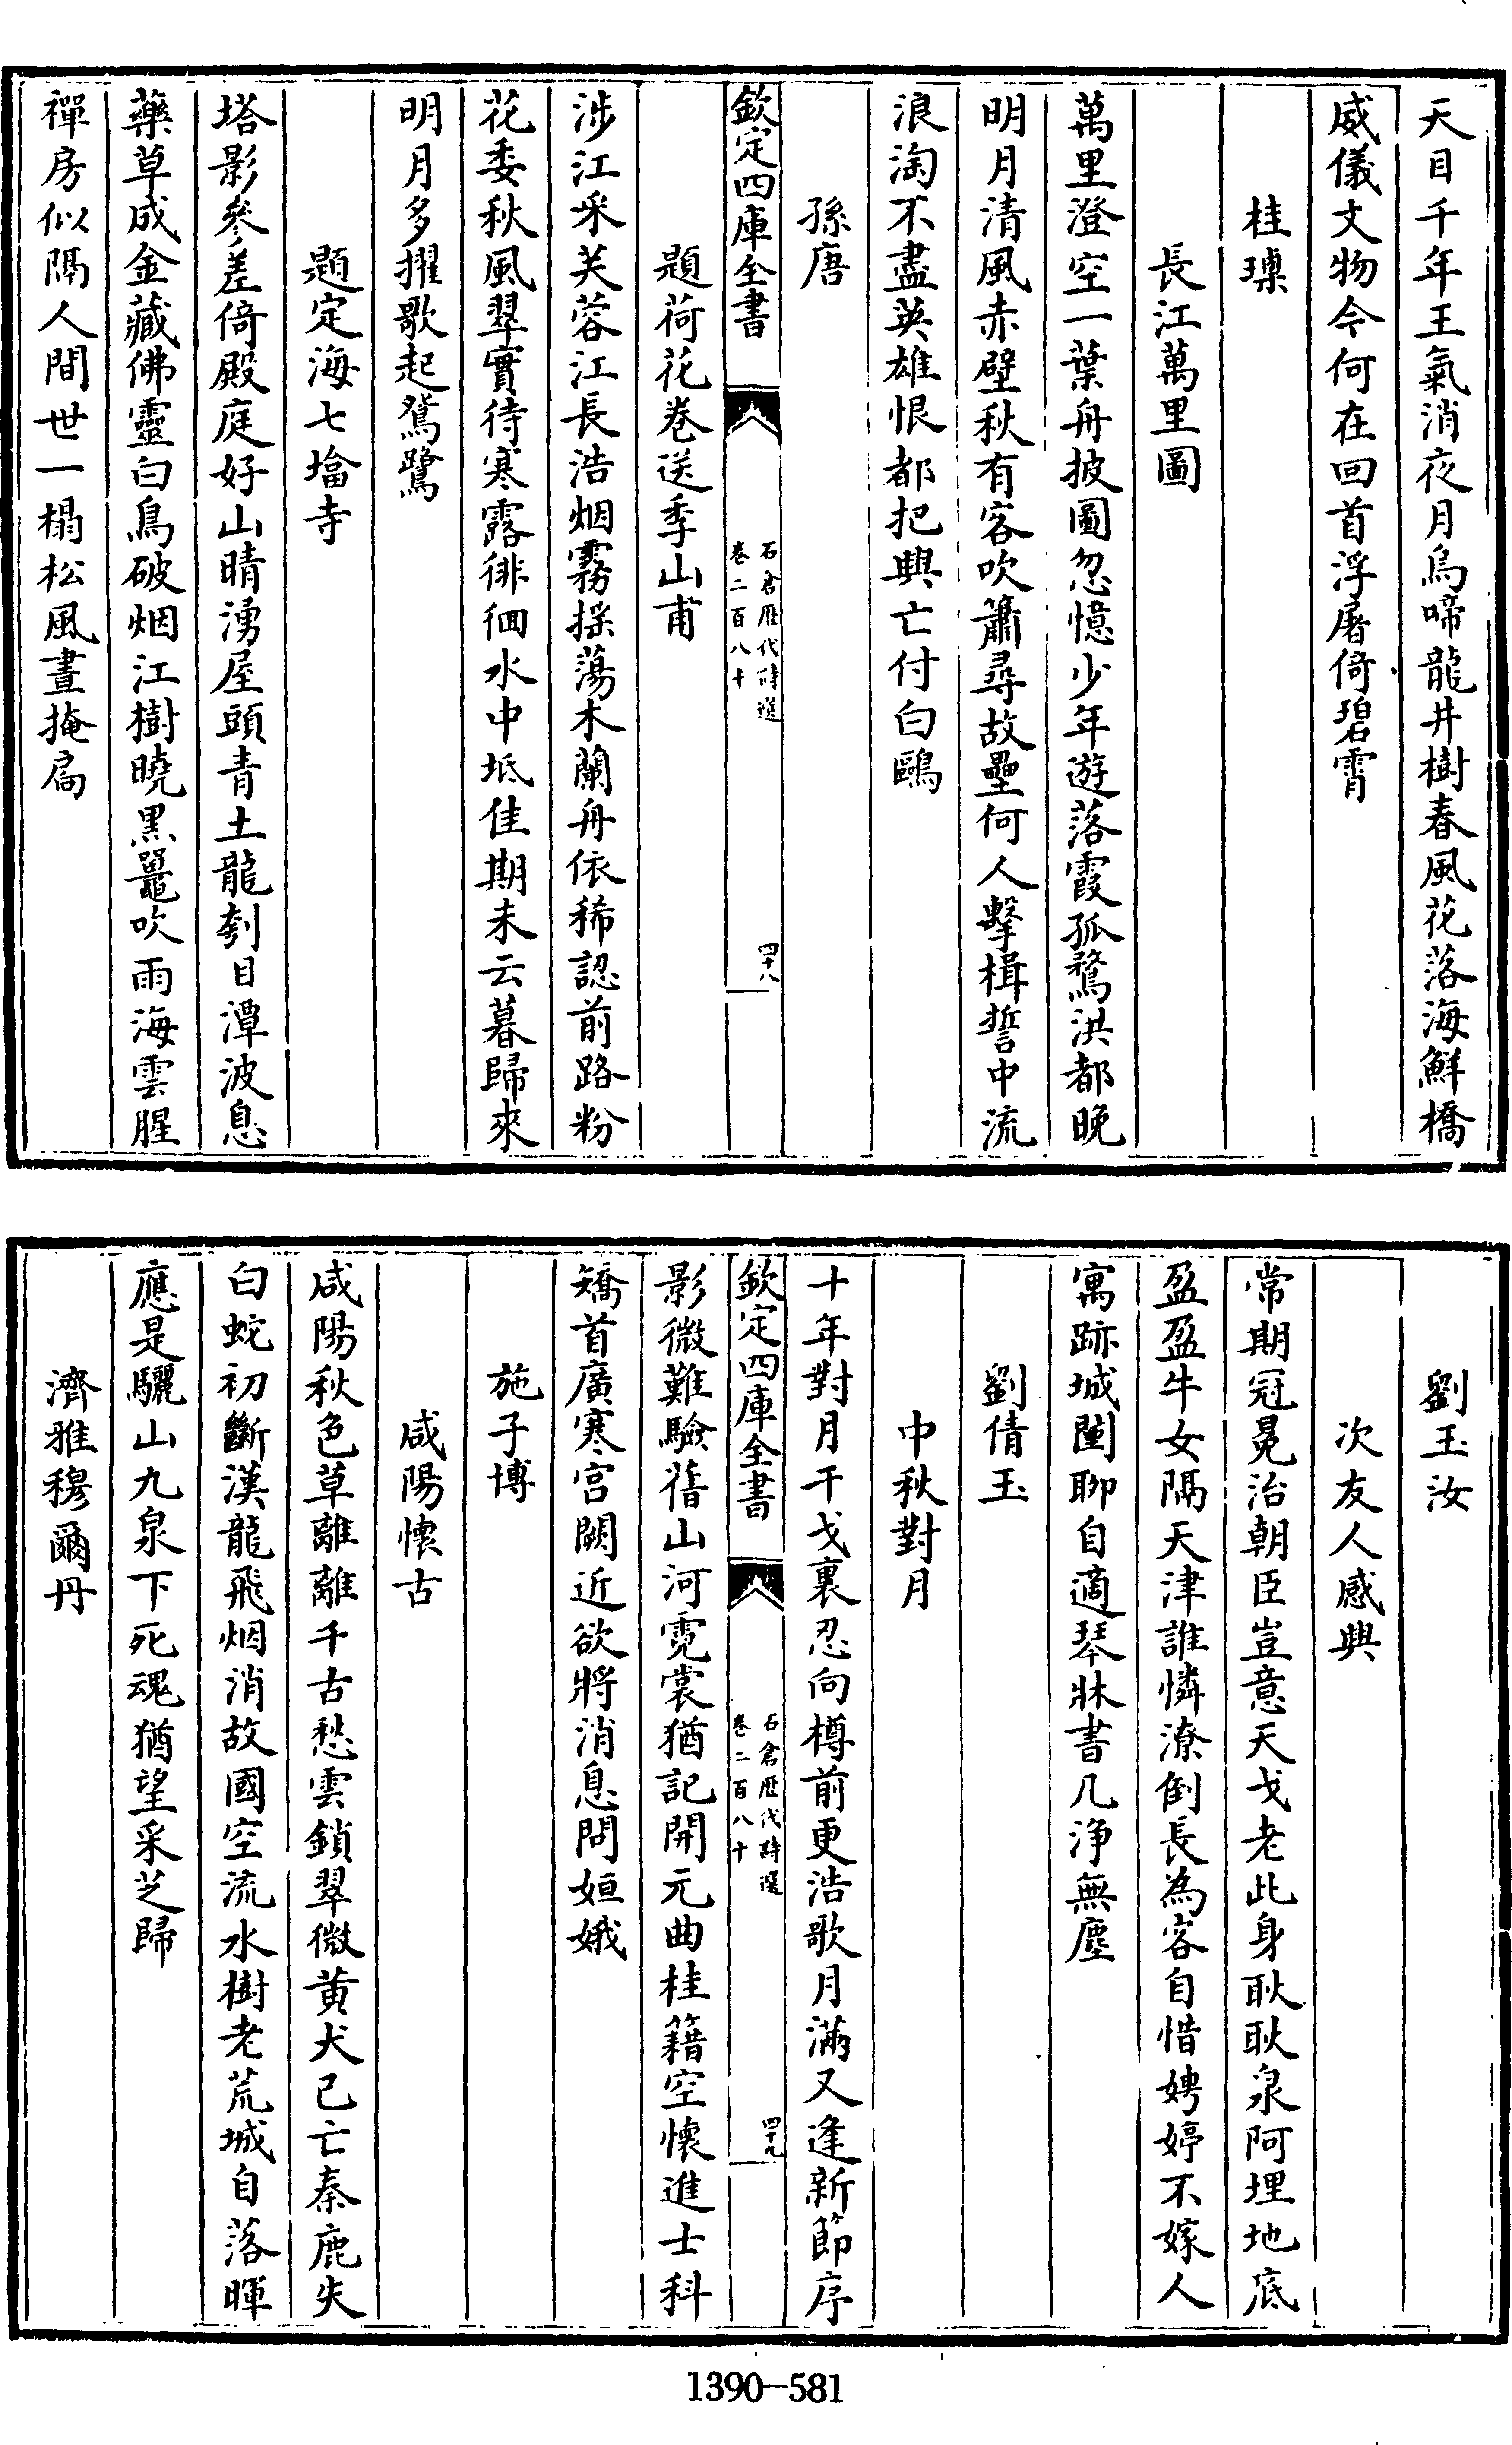 天目千年王氣消夜月烏啼龍井樹春風花落海鮮橋
威儀文物今何在回首浮屠倚碧霄
桂𤩽
長江萬里圖
萬里澄空一葉舟披圖忽憶少年遊落霞孤鶩洪都晚
明月清風赤壁秋有客吹簫尋故壘何人擊楫誓中流
浪淘不盡英雄恨都把興亡付白鷗
孫唐
欽定四庫全書
石倉歷代詩選
卷二百八十
四十八
題荷花卷送季山甫
涉江采芙蓉江長浩烟霧搖蕩木蘭舟依稀認前路粉
花委秋風翠實待寒露徘徊水中坻佳期未云暮歸來
明月多擢歌起鴛鷺
題定海七塔寺
塔影參差倚殿庭好山晴湧屋頭青土龍刳目潭波息
藥草成金藏佛靈白鳥破烟江樹曉黑鼉吹雨海雲腥
禪房似隔人間世一榻松風晝掩扃
劉玉汝
次友人感興
常期冠冕治朝臣豈意天戈老此身耿耿泉阿埋地底
盈盈牛女隔天津誰憐潦倒長為客自惜娉婷不嫁人
寓跡城闉聊自適琴牀書几淨無塵
劉倩玉
中秋對月
十年對月干戈裏忍向樽前更浩歌月滿又逢新節序
欽定四庫全書
石倉歷代詩選
卷二百八十
四十九
影微難驗舊山河霓裳猶記開元曲桂籍空懷進士科
矯首廣寒宮闕近欲將消息問姮娥
施子博
咸陽懷古
咸陽秋色草離離千古愁雲鎖翠微黄犬已亡秦鹿失
白蛇初斷漢龍飛烟消故國空流水樹老荒城自落暉
應是驪山九泉下死魂猶望采芝歸
濟雅穆爾丹
1390-581